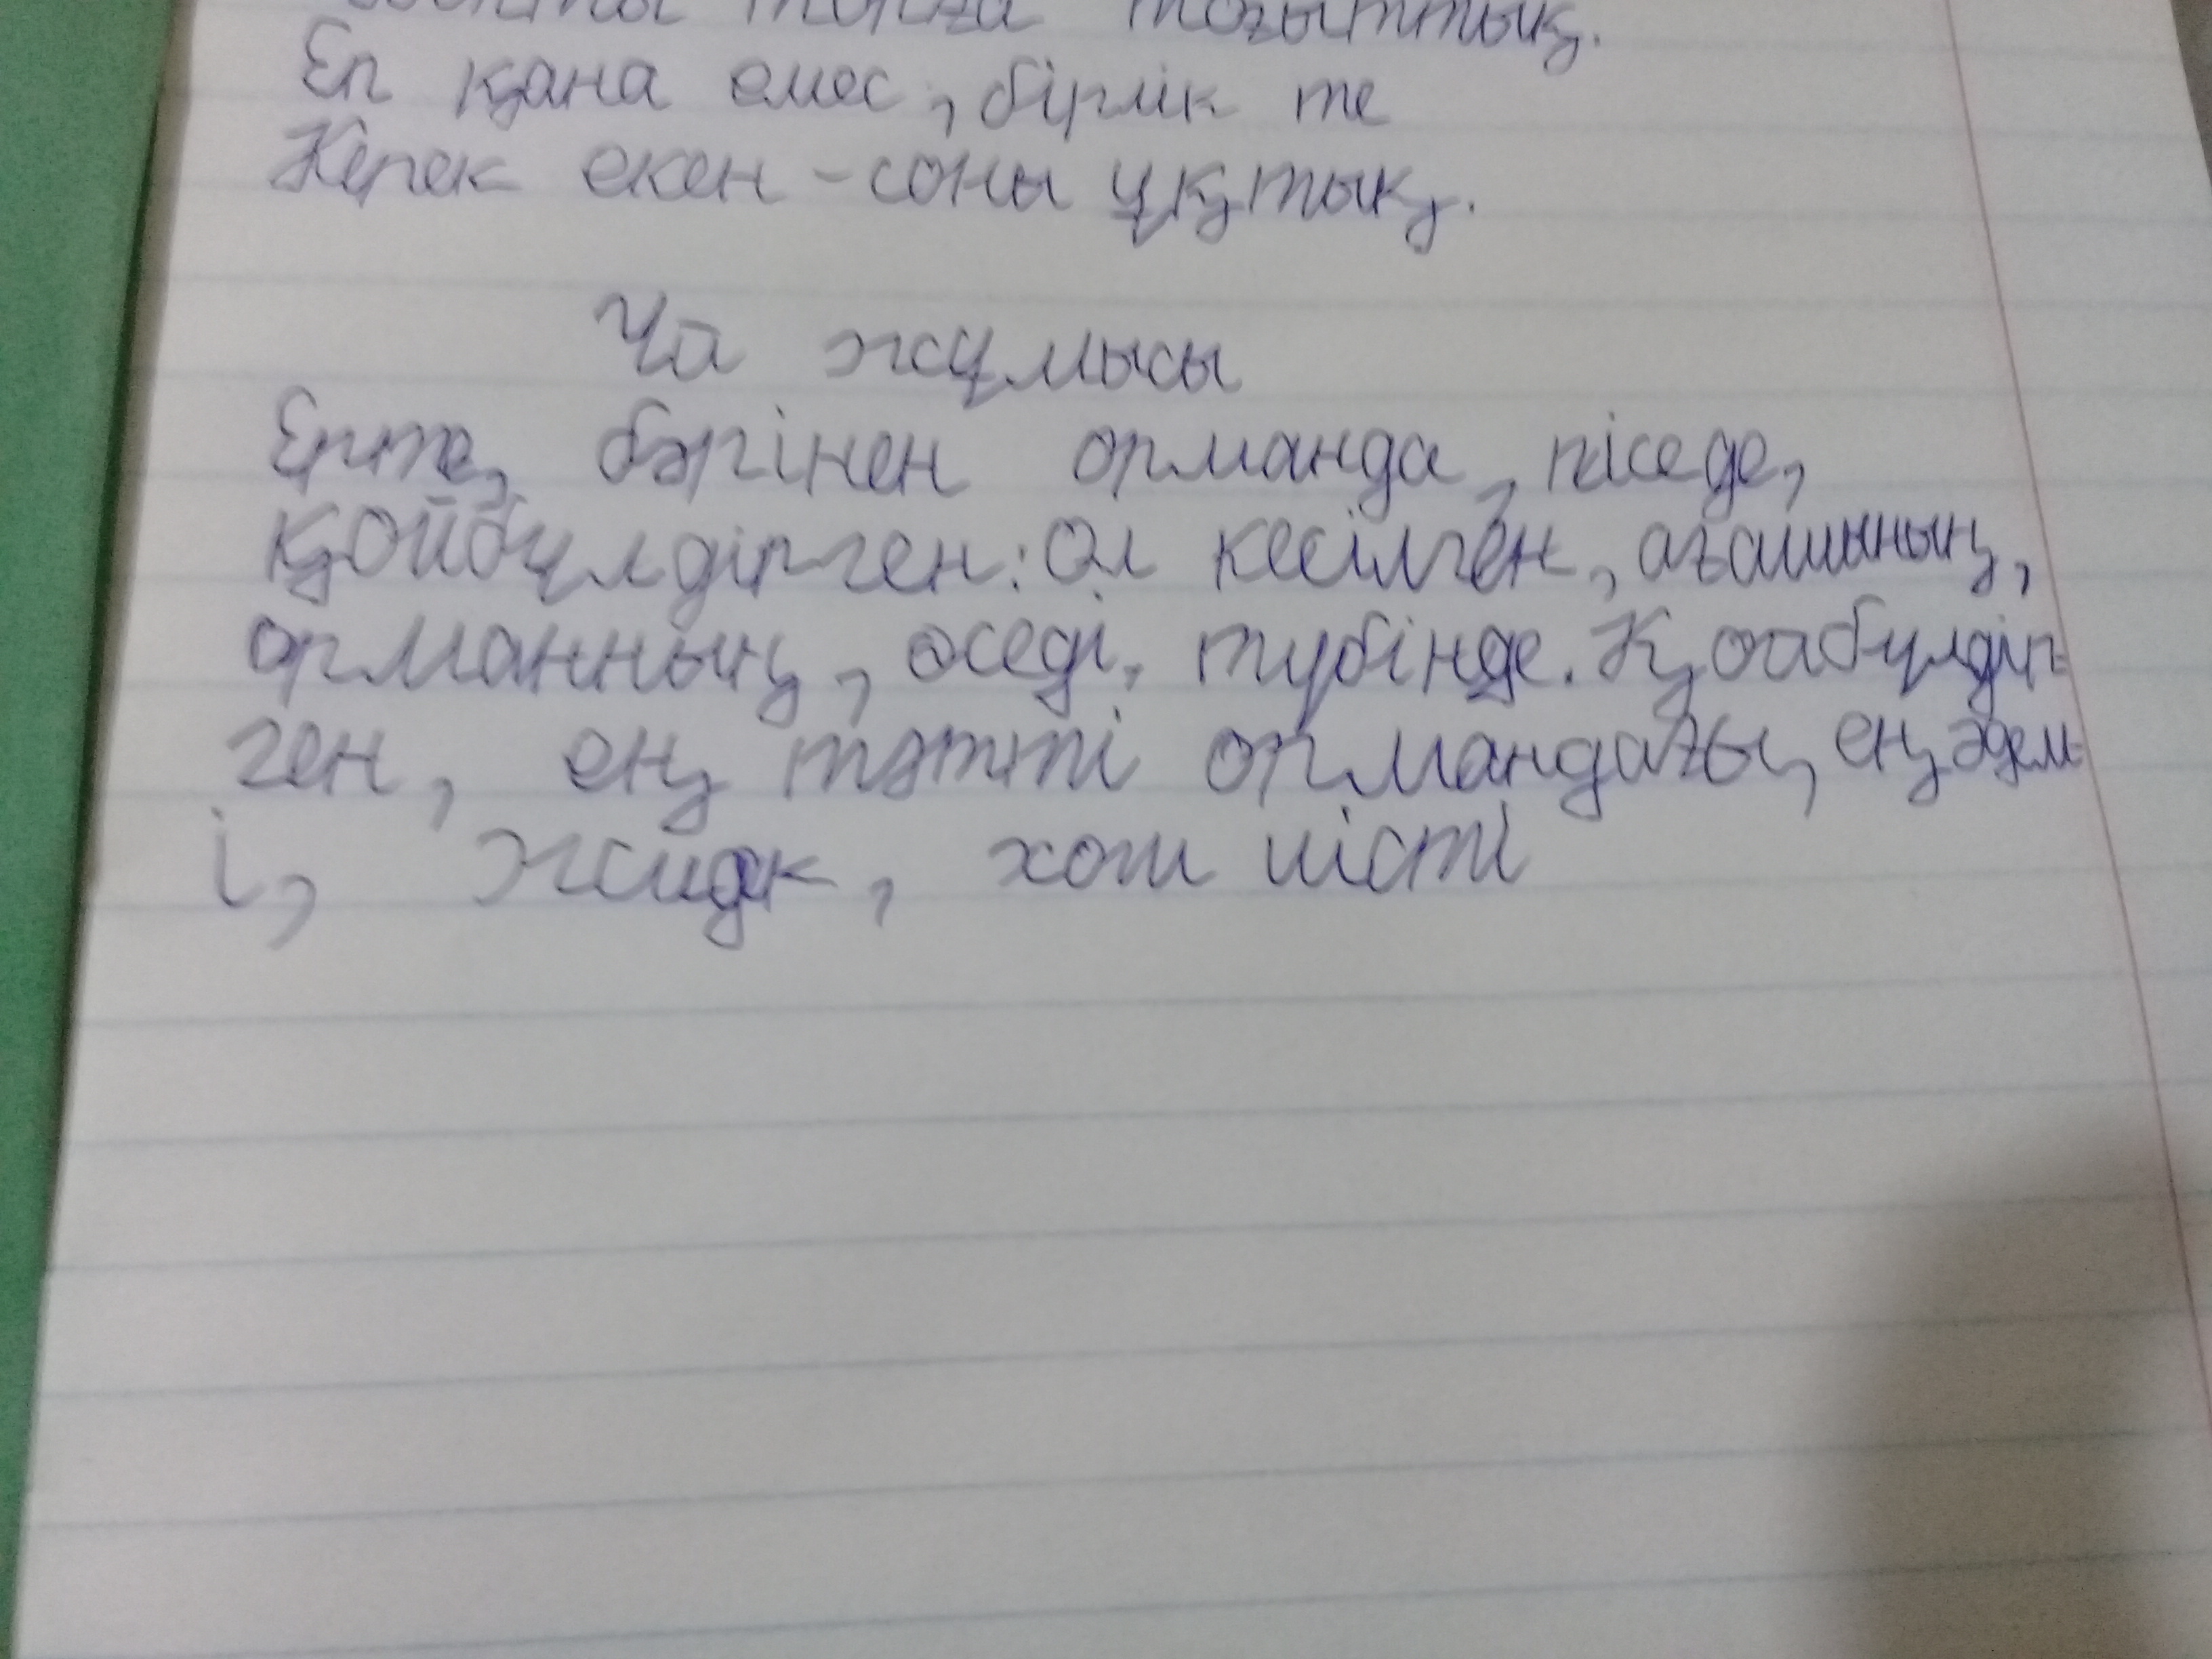 топқа тоғыттық.
Ел қана емес, бірлік те
Керек екен - соны ұқтық.
Үй жұмысы
Ерте, бәрінен орманда, піседе,
қойбүлдірген: Ол кесілген, ағашының,
орманның, өседі, түбінде. Қойбүлдір-
ген, ең тәтті ормандағы, ең әдем-
і, жидек, хош иісті